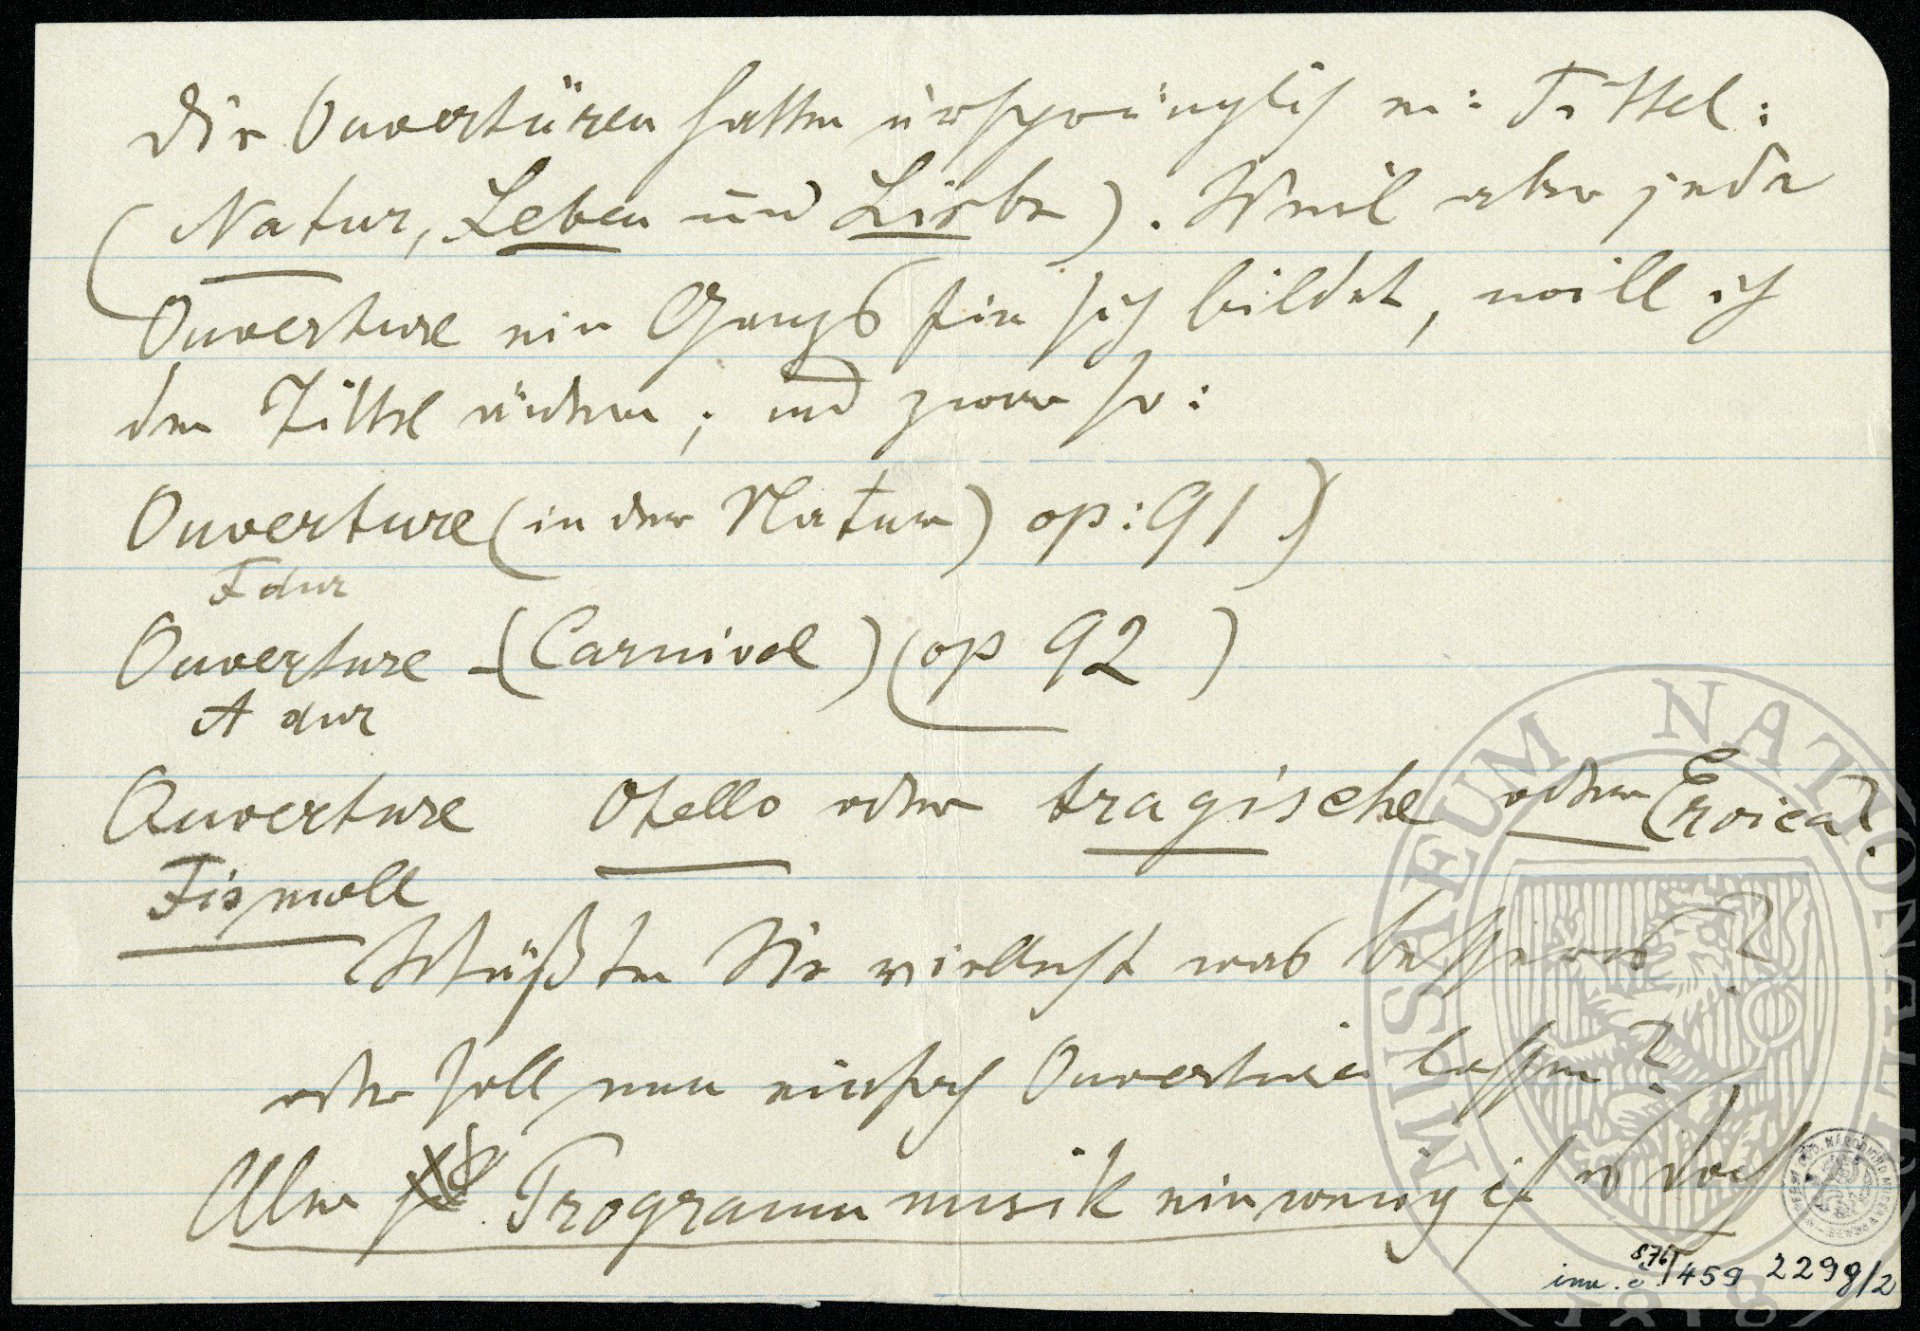 Die Ouvertüren hatten ursprünglich ein: Tittel:
(Natur, Leben und Liebe). Weil aber jede
Ouverture ein Ganzes für sich bildet, will ich
den Tittel ändern; und zwar so:
Ouverture (in der Natur) op: 91)
F dur
Ouverture - (Carnival) (op 92)
A dur
Ouverture Otello oder tragische oder Eroica?
Fis moll
Wüßten Sie vielleicht was besseres?
oder soll man einfach Ouverture lassen?
Aber Programmmusik ein wenig ist es doch
inv. č. 876/459 2299/2
MUSAEUM NATIONALE
1818